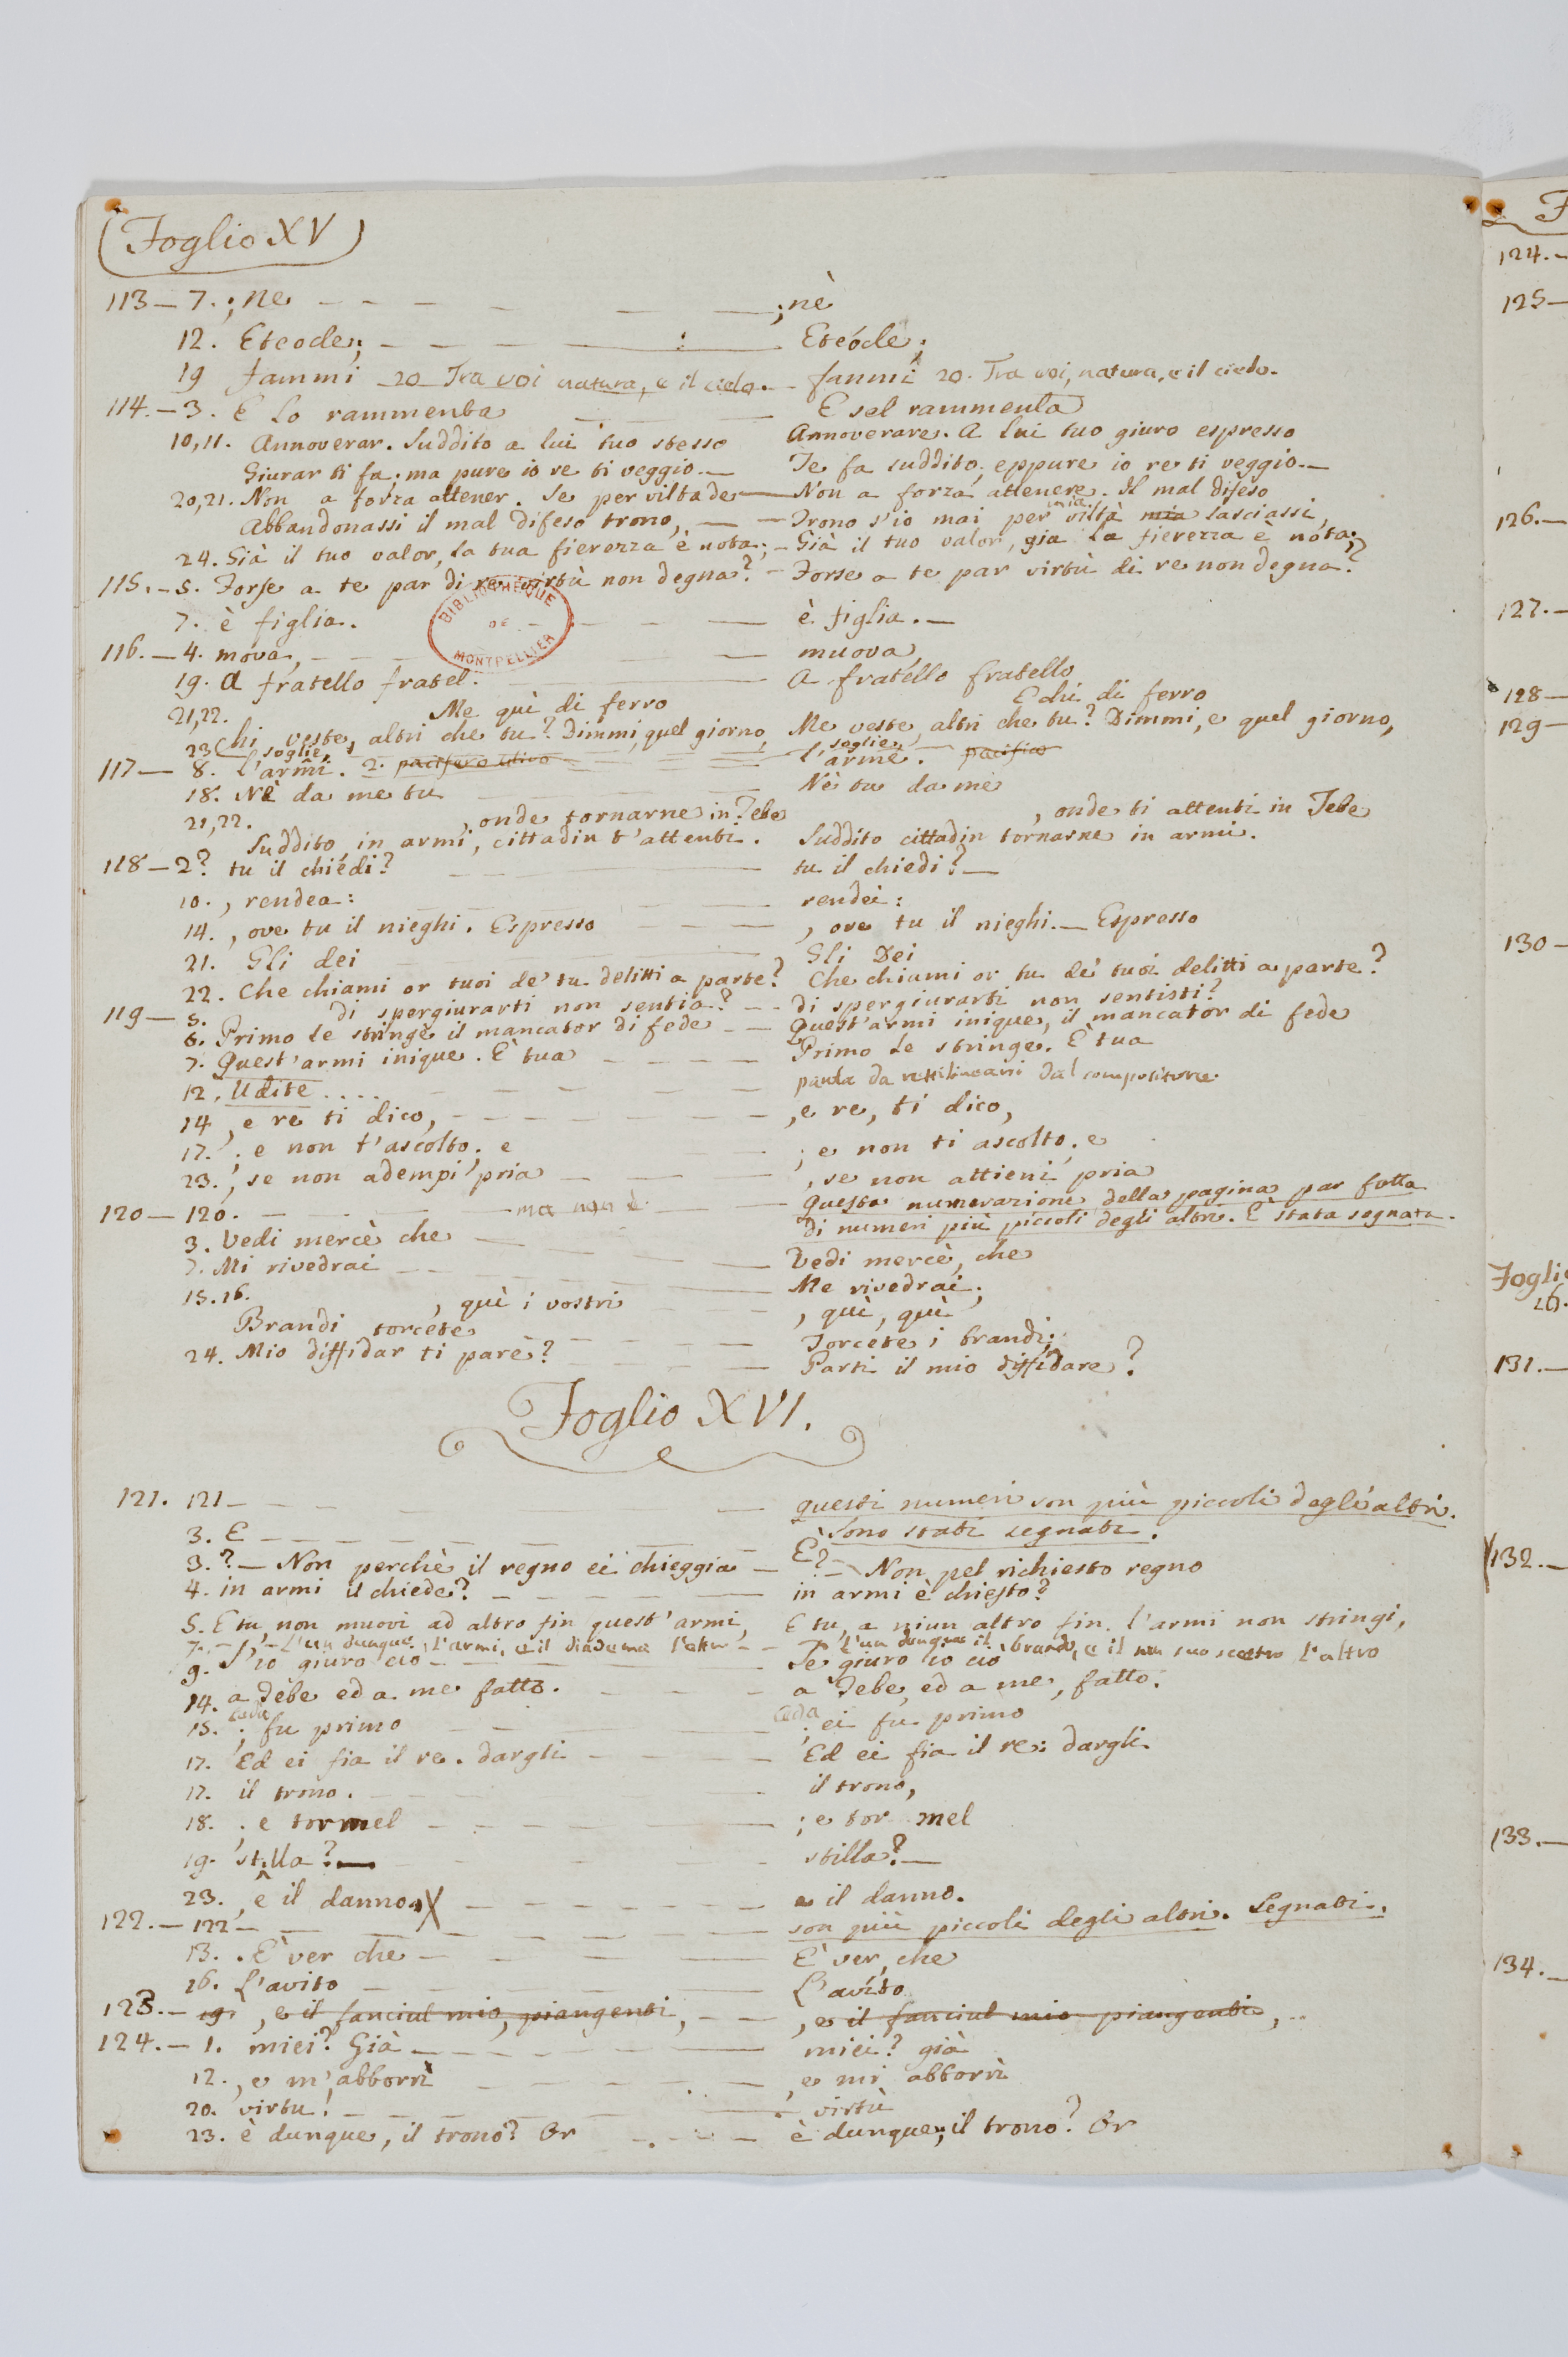 Foglio XV
113 — 7. ; ne — — — — — ; nè
12. Eteode; — — — — Eteócle;
19 fammi — 20 — Tra voi natura, e il cielo. — fammi 20. Tra voi, natura, e il cielo.
114. — 3. E lo rammenta — — E sel rammenta
10, 11. Annoverar. Suddito a lui tuo stesso Annoverare. A lui tuo giuro espresso
Giurar ti fa; ma pure io re ti veggio. — Te fa suddito; eppure io re ti veggio. —
20, 21. Non a forza attener. Se per viltade — Non a forza attenere. Il mal difeso
Abbandonassi il mal difeso trono, — — Trono s'io mai per mia viltà mia lasciassi,
24. Già il tuo valor, la tua fierezza è nota; — Già il tuo valor, gia la fierezza è nota;
115. — 5. Forse a te par di re virtù non degna? — Forse a te par virtù di re non degna?
7. è figlia. — — — è figlia. —
BIBLIOTHEQUE DE MONTPELLIER
116. — 4. mova, — — — muova,
19. A fratello fratel. — — A fratello fratello
21, 22. Me quì di ferro E chi di ferro
23 Chi veste, altri che tu? Dimmi, quel giorno, Me veste, altri che tu? Dimmi, e quel giorno,
soglie, soglie,
117 — 8. l'armi. 2. pacifero ulivo — — l'arme. pacifico
18. Nè da me tu — — Nè tu da me
21, 22. , onde tornarne in Tebe , onde ti attenti in Tebe
Suddito in armi, cittadin t'attenti. Suddito cittadin tornarne in armi.
118 — 2? tu il chiedi? — — tu il chiedi? —
10. , rendea: — — rendei:
14. , ove tu il nieghi. Espresso — — — , ove tu il nieghi. — Espresso
21. Gli dei — — Gli Dei
22. Che chiami or tuoi de' tu delitti a parte? Che chiami or tu de' tuoi delitti a parte?
119 — 5. di spergiurarti non sentia? — — di spergiurarti non sentisti?
6. Primo le stringe il mancator di fede — — Quest'armi inique, il mancator di fede
7. Quest'armi inique. È tua — — — Primo le stringe. È tua
12. Udite . . . . — — — punta da rettilinearsi dal compositore.
14 , e re ti dico, — — — , e re, ti dico,
17. ; e non t'ascolto; e — ; e non ti ascolto; e
23. , se non adempi pria — — — , se non attieni pria
120 — 120. — — ma non è — — Questa numerazione della pagina par fatta
di numeri più piccoli degli altri. È stata segnata.
3. Vedi mercè che — — — Vedi mercè, che
7. Mi rivedrai — — — Me rivedrai;
15. 16. , quì i vostri — — — , quì, quì
Brandi torcete — — — Torcete i brandi;
24. Mio diffidar ti pare? — — — Parti il mio diffidare?
Foglio XVI.
121. 121 — — — — questi numeri son più piccoli degli altri.
Sono stati segnati.
3. E — — — — È
3. ? — Non perchè il regno ei chieggia — ? — Non pel richiesto regno
4. in armi il chiede? — — — in armi è chiesto?
5. E tu, non muovi ad altro fin quest'armi, E tu, a niun altro fin l'armi non stringi,
7. — L'un dunque l'armi, e il diadema l'altro — — L'un dunque il brando, e il non suo scettro l'altro
9. S'io giuro ciò — — — Se giuro io ciò
14. a Tebe ed a me fatto. — — — a Tebe, ed a me, fatto.
15. ceda; fu primo — — — ceda; ei fu primo
17. Ed ei fia il re. dargli — — — Ed ei fia il re: dargli.
17. il trono. — — — il trono,
18. ; e tormel — — — ; e tor mel
19. stilla? — — — stilla? —
23. , e il danno. X — — — e il danno.
122. — 122 — — — son più piccoli degli altri. Segnati.
13. . È ver che — — — È ver, che
16. L'avito — — — L'avíto
123. — 19. , e il fanciul mio, piangenti, — — , e il fanciul mio piangenti,
124. — 1. miei? Già — — — miei? già
12. , e m'abborrì — — — , e mi abborrì
20. virtu! — — — virtù
23. è dunque, il trono? Or — — — è dunque, il trono? Or
F
124. —
125 —
126. —
127. —
128 —
129 —
130 —
Foglio
26.
131. —
132. —
133. —
134. —